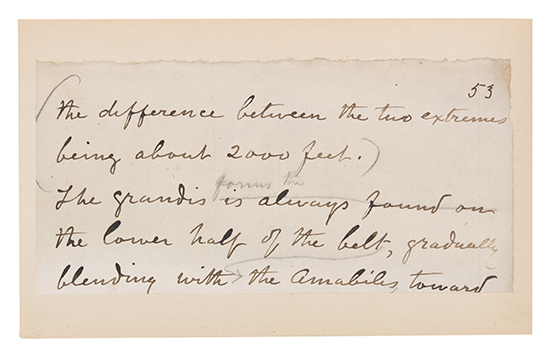 53
(the difference between the two extremes
being about 2000 feet.)
forms the
The grandis is always found on
the lower half of the belt, gradually
blending with the Amabilis, toward